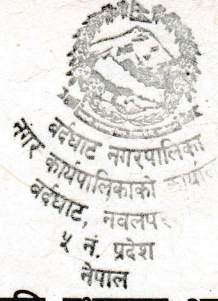 बर्दघाट नगरपालिका
नगर कार्यपालिकाको
बर्दघाट, नवलप
५ नं. प्रदेश
नेपाल